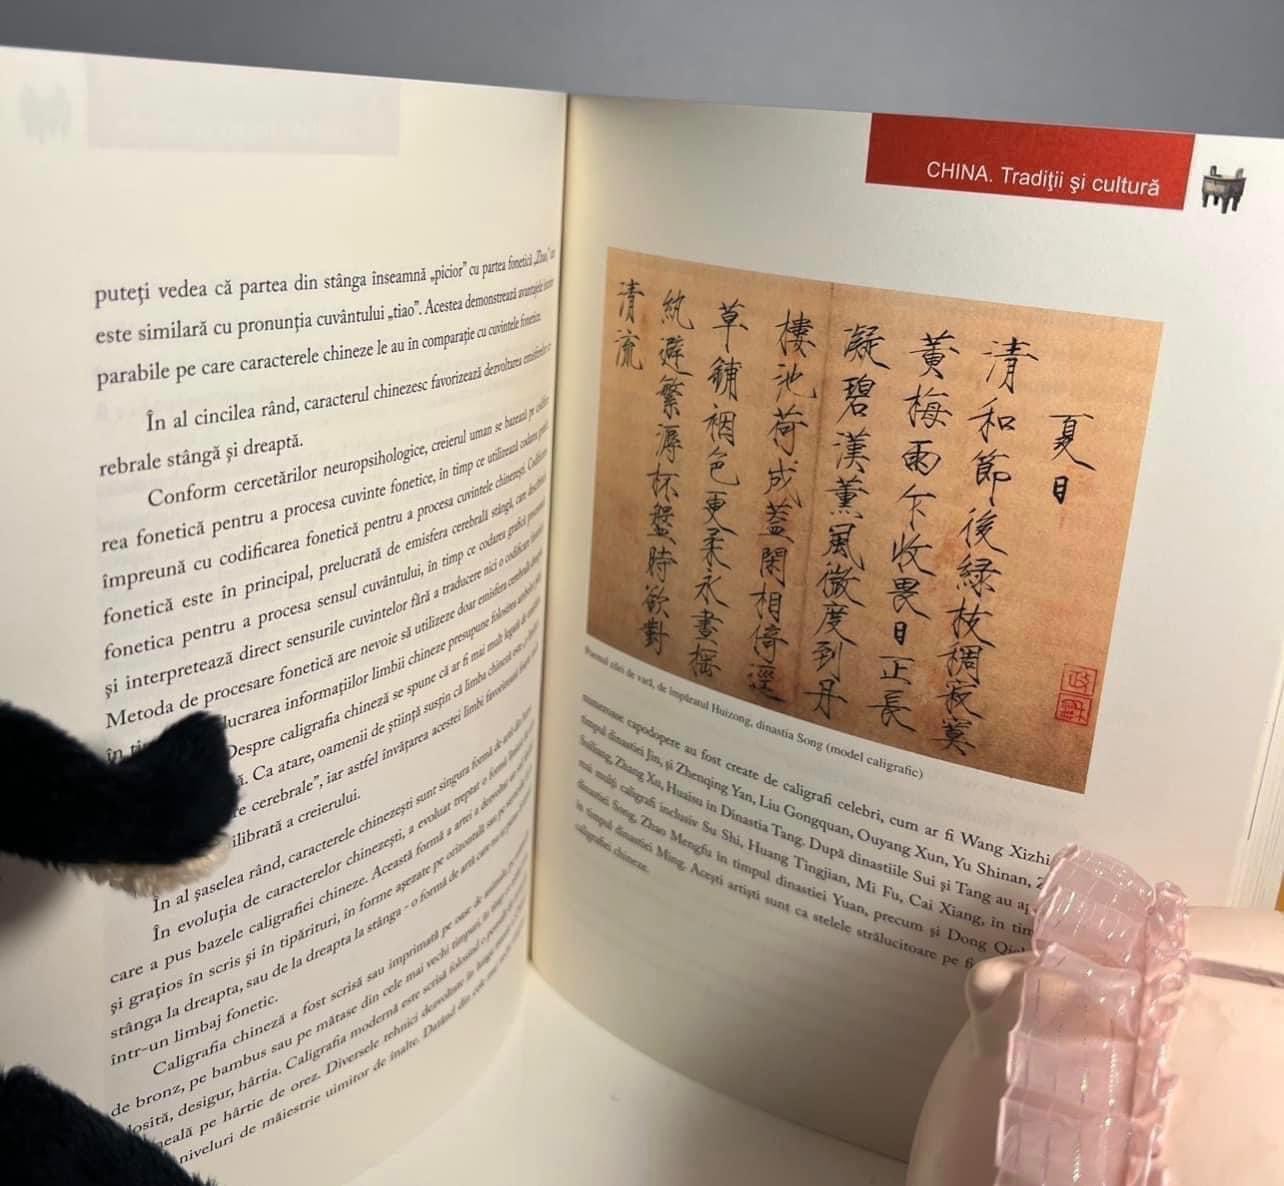 puteţi vedea că partea din stânga înseamnă „picior” cu partea fonetică „Zhao,”
este similară cu pronunţia cuvântului „tiao”. Acestea demonstrează avantajele
parabile pe care caracterele chineze le au în comparaţie cu cuvintele fonetice.
În al cincilea rând, caracterul chinezesc favorizează dezvoltarea emisferelor
rebrale stângă şi dreaptă.
Conform cercetărilor neuropsihologice, creierul uman se bazează pe
rea fonetică pentru a procesa cuvinte fonetice, în timp ce utilizează codarea
împreună cu codificarea fonetică pentru a procesa cuvintele chinezeşti.
fonetică este în principal, prelucrată de emisfera cerebrală stângă, care
fonetica pentru a procesa sensul cuvântului, în timp ce codarea grafică
şi interpretează direct sensurile cuvintelor fără a traducere nici o codificare
Metoda de procesare fonetică are nevoie să utilizeze doar emisfera cerebrală
în lucrarea informaţiilor limbii chineze presupune folosirea
Despre caligrafia chineză se spune că ar fi mai mult legată de
ă. Ca atare, oamenii de ştiinţă susţin că limba chineză este o
re cerebrale”, iar astfel învăţarea acestei limbi favorizează
ilibrată a creierului.
În al şaselea rând, caracterele chinezeşti sunt singura formă de artă din
În evoluţia de caracterelor chinezeşti, a evoluat treptat o formă
care a pus bazele caligrafiei chineze. Această formă a artei a dezvoltat un stil
şi graţios în scris şi în tipărituri, în forme aşezate pe orizontală sau pe verticală
stânga la dreapta, sau de la dreapta la stânga – o formă de artă care nu
într-un limbaj fonetic.
Caligrafia chineză a fost scrisă sau imprimată pe oase de animale,
de bronz, pe bambus sau pe mătase din cele mai vechi timpuri,
losită, desigur, hârtia. Caligrafia modernă este scrisă folosind o
neală pe hârtie de orez. Diversele tehnici dezvoltate în lunga
niveluri de măiestrie uimitor de înalte. Datând din cele mai
CHINA. Tradiţii şi cultură
夏日
清和節後綠枝稠寂寞
黃梅雨乍收畏日正長
凝碧漢薰風微度到丹
樓池荷成蓋閑相倚逕
草鋪裀色更柔永晝搖
紈避繁溽杯盤時欲對
清流
Poemul zilei de vară, de împăratul Huizong, dinastia Song (model caligrafic)
numeroase capodopere au fost create de caligrafi celebri, cum ar fi Wang Xizhi
timpul dinastiei Jin, şi Zhenqing Yan, Liu Gongquan, Ouyang Xun, Yu Shinan,
Suiliang, Zhang Xu, Huaisu in Dinastia Tang. După dinastiile Sui şi Tang au
mai mulţi caligrafi inclusiv Su Shi, Huang Tingjian, Mi Fu, Cai Xiang, în
dinastiei Song, Zhao Mengfu în timpul dinastiei Yuan, precum şi Dong
în timpul dinastiei Ming. Aceşti artişti sunt ca stelele strălucitoare pe
caligrafiei chineze.